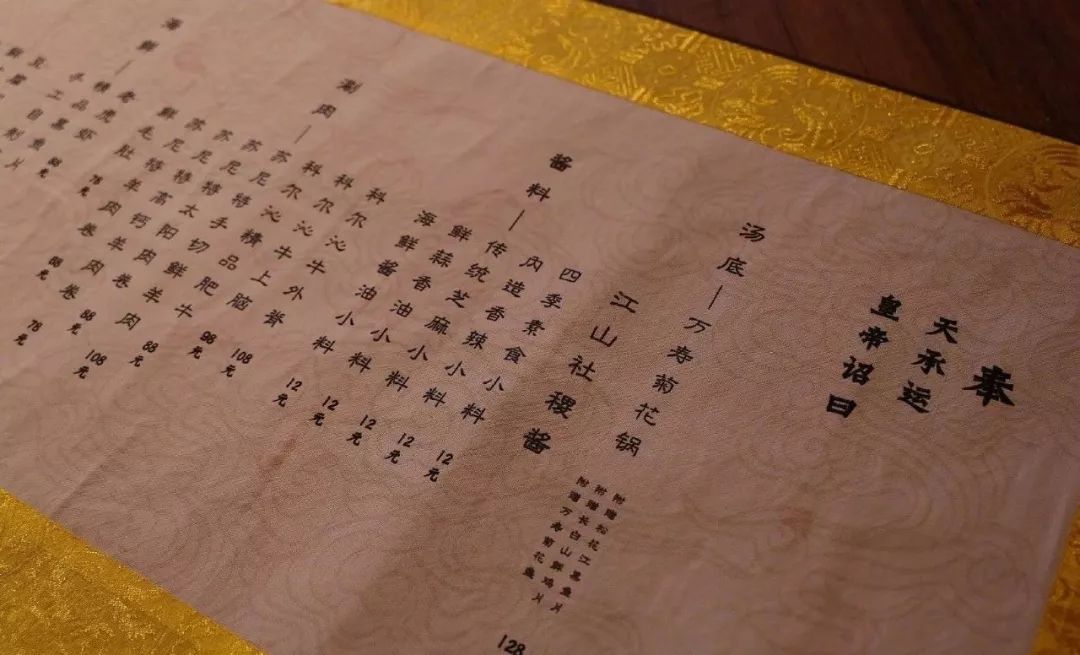 奉
天承运
皇帝诏曰
汤底—万寿菊花锅
附赠松花江墨鱼片
附赠长白山鲜鸡片
附赠万寿菊花
128
江山社稷酱
酱料—
四季素食小料 12元
内造香辣小料 12元
传统芝麻小料 12元
鲜蒜香油小料 12元
海鲜酱油小料 12元
涮肉—
科尔沁牛外脊 108元
科尔沁牛上脑 98元
科尔沁精品肥牛 88元
苏尼特手切鲜羊肉 108元
苏尼特太阳羊肉卷 88元
苏尼特高钙羊肉卷 68元
鲜毛肚 78元
海鲜—
老虎虾 78元
精品墨鱼 68元
手工
豆
鲜
片